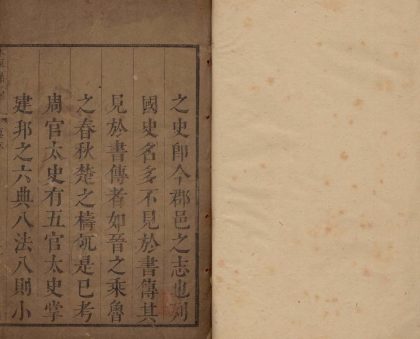 之史卽今郡邑之志也列
國史名多不見於書傳其
見於書傳者如晉之乘魯
之春秋楚之檮杌是已考
周官太史有五官太史掌
建邦之六典八法八則小